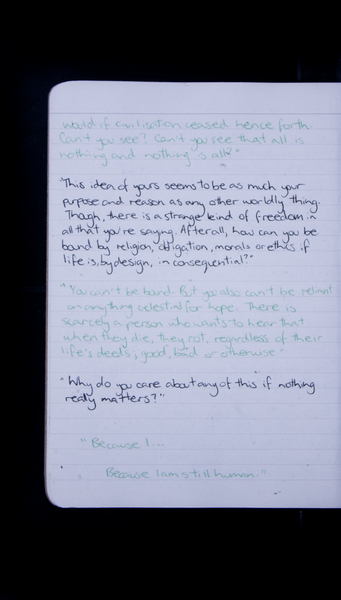 would if civilisation ceased hence forth.
Can't you see? Can't you see that all is
nothing and nothing is all?"
"This idea of yours seems to be as much your
purpose and reason as any other worldly thing.
Though, there is a strange kind of freedom in
all that you're saying. After all, how can you be
band by religion, obligation, morals or ethics if
life is, by design, inconsequential?"
"You can't be band. But you also can't be reliant
on anything celestial for hope. There is
scarcely a person who wants to hear that
when they die, they rot, regardless of their
life's deeds, good, bad or otherwise"
"Why do you care about any of this if nothing
really matters?"
"Because I...
Because I am still human."